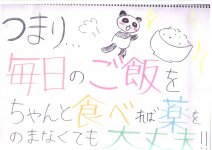 つまり…
毎日のご飯を
ちゃんと食べれば薬を
のまなくても大丈夫!!